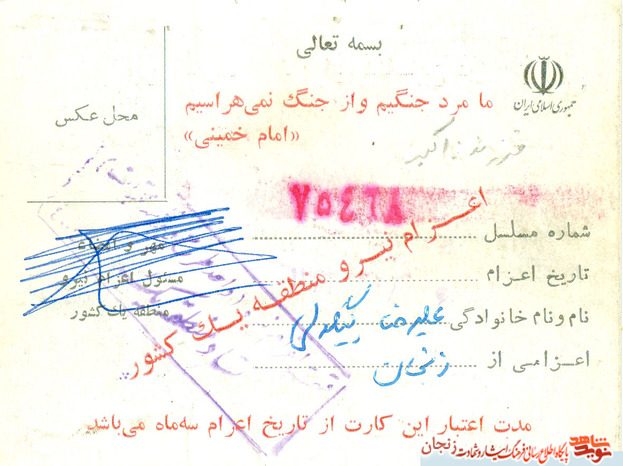 بسمه تعالی
جمهوری اسلامی ایران
ما مرد جنگیم و از جنگ نمی‌هراسیم
«امام خمینی»
محل عکس
اعزام نیرو منطقه یک کشور
شماره مسلسل
تاریخ اعزام
نام و نام خانوادگی علیرضا
اعزامی از زنجان
مهر و امضاء
مسئول اعزام نیرو
منطقه یک کشور
مدت اعتبار این کارت از تاریخ اعزام سه‌ماه می‌باشد.
نوید شاهد
پایگاه اطلاع رسانی فرهنگ ایثار و شهادت زنجان